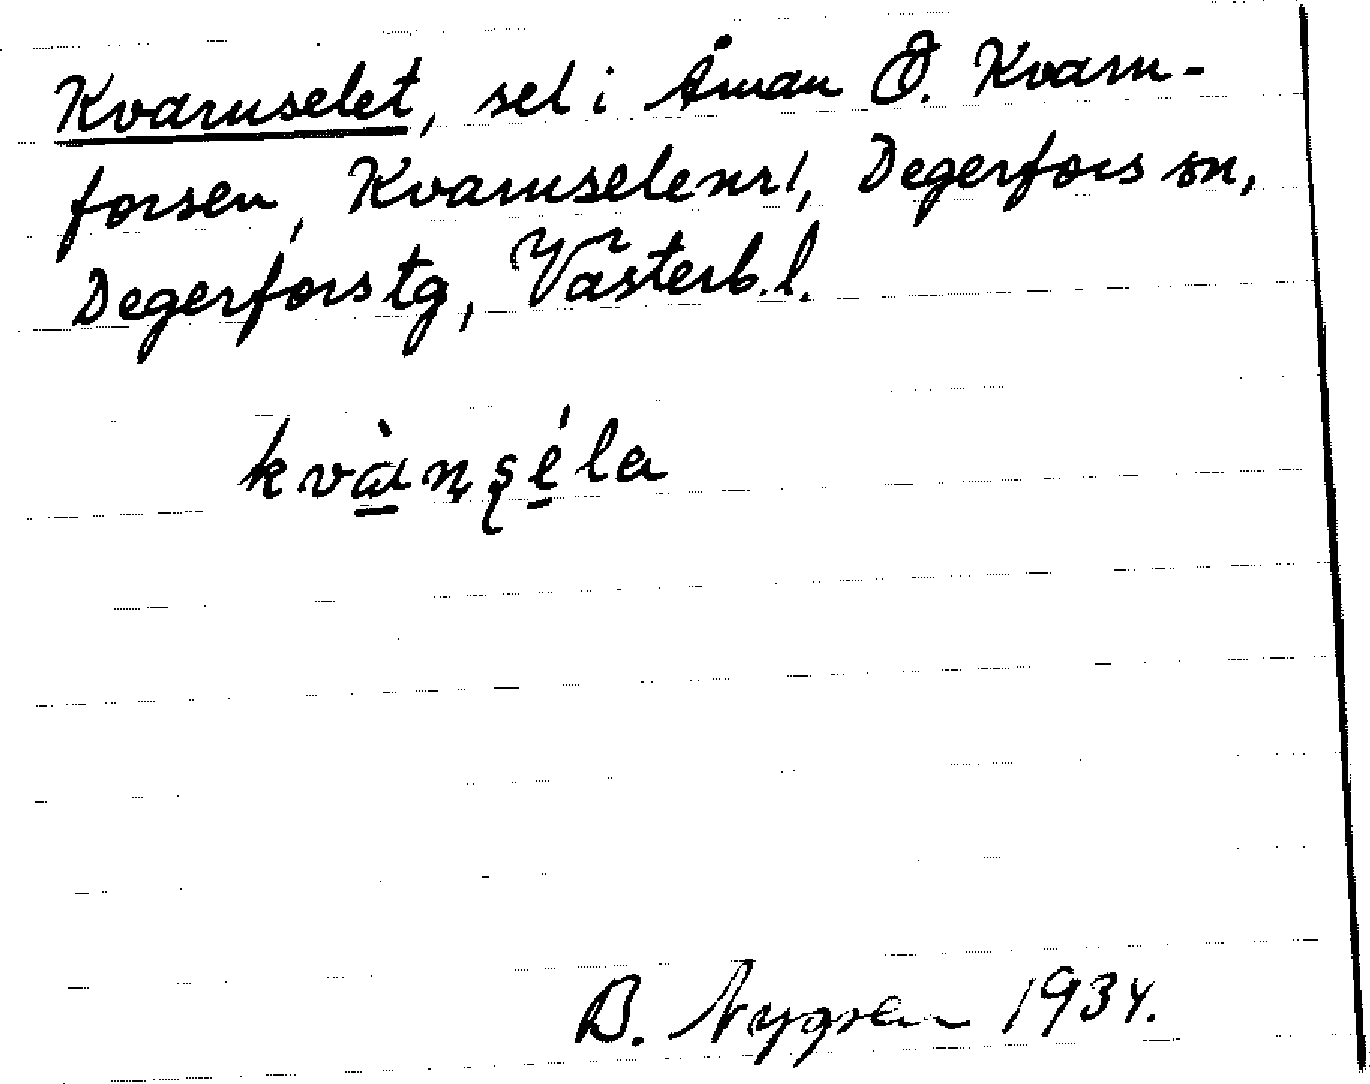 Kvarnselet, sel i Åman Ö. Kvarn-
forsen, Kvarnselenr1, Degerfors sn,
Degerfors tg, Västerb.l.
kvà̱ṇṣé̱la
B. Nygren 1934.